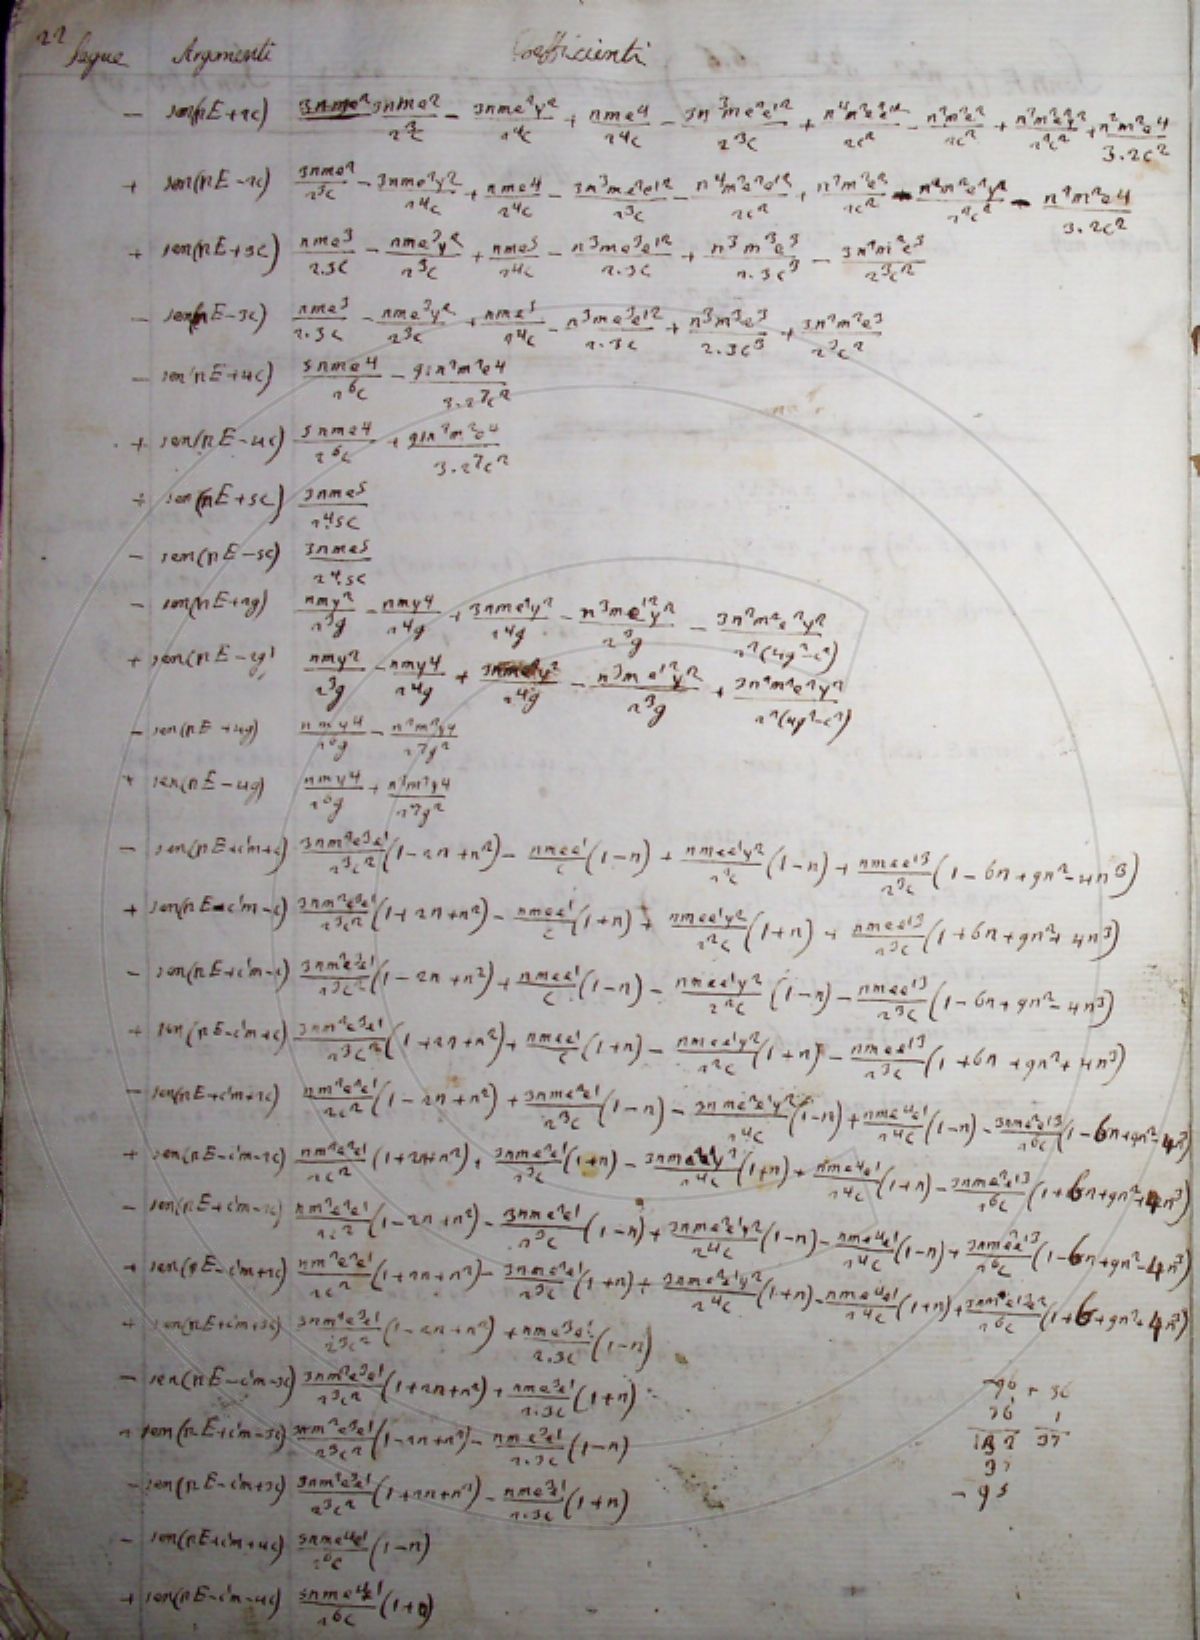 22 Segue Argomenti Coefficienti
− sen(nE+2c) 3nme²/2³c − 3nme²γ²/2⁴c + nme⁴/2⁴c − 3n³me²e'²/2³c + n⁴m²e²e'²/2c² − n²m²e²/2c² + n²m²e²γ²/2²c² + n²m²e⁴/3.2c²
+ sen(nE−2c) 3nme²/2³c − 3nme²γ²/2⁴c + nme⁴/2⁴c − 3n³me²e'²/2³c − n⁴m²e²e'²/2c² + n²m²e²/2c² − n²m²e²γ²/2²c² − n²m²e⁴/3.2c²
+ sen(nE+3c) nme³/2.3c − nme³γ²/2³c + nme⁵/2⁴c − n³me³e'²/2.3c + n³m³e³/2.3c³ − 3n²m²e³/2³c²
− sen(nE−3c) nme³/2.3c − nme³γ²/2³c + nme⁵/2⁴c − n³me³e'²/2.3c + n³m³e³/2.3c³ + 3n²m²e³/2³c²
− sen(nE+4c) 5nme⁴/2⁶c − 91n²m²e⁴/3.2⁷c²
+ sen(nE−4c) 5nme⁴/2⁶c + 91n²m²e⁴/3.2⁷c²
+ sen(nE+5c) 3nme⁵/2⁴.5c
− sen(nE−5c) 3nme⁵/2⁴.5c
− sen(nE+2g) nmγ²/2³g − nmγ⁴/2⁴g + 3nme²γ²/2⁴g − n³me'²γ²/2³g − 3n²m²e²γ²/2²(4g²−c²)
+ sen(nE−2g) nmγ²/2³g − nmγ⁴/2⁴g + 3nme²γ²/2⁴g − n³me'²γ²/2³g + 3n²m²e²γ²/2²(4g²−c²)
− sen(nE+4g) nmγ⁴/2⁶g − n²m²γ⁴/2⁷g²
+ sen(nE−4g) nmγ⁴/2⁶g + n²m²γ⁴/2⁷g²
− sen(nE+c'm+c) 3nm²e³e'/2³c²(1−2n+n²) − nmee'/c(1−n) + nmee'γ²/2²c(1−n) + nmee'³/2³c(1−6n+9n²−4n³)
+ sen(nE−c'm−c) 3nm²e³e'/2³c²(1+2n+n²) − nmee'/c(1+n) + nmee'γ²/2²c(1+n) + nmee'³/2³c(1+6n+9n²+4n³)
− sen(nE+c'm−c) 3nm²e³e'/2³c²(1−2n+n²) + nmee'/c(1−n) − nmee'γ²/2²c(1−n) − nmee'³/2³c(1−6n+9n²−4n³)
+ sen(nE−c'm+c) 3nm²e³e'/2³c²(1+2n+n²) + nmee'/c(1+n) − nmee'γ²/2²c(1+n) − nmee'³/2³c(1+6n+9n²+4n³)
− sen(nE+c'm+2c) nm²e²e'/2c²(1−2n+n²) + 3nme²e'/2³c(1−n) − 3nme²e'γ²/2⁴c(1−n) + nme⁴e'/2⁴c(1−n) − 3nme²e'³/2⁶c(1−6n+9n²−4n³)
+ sen(nE−c'm−2c) nm²e²e'/2c²(1+2n+n²) + 3nme²e'/2³c(1+n) − 3nme²e'γ²/2⁴c(1+n) + nme⁴e'/2⁴c(1+n) − 3nme²e'³/2⁶c(1+6n+9n²+4n³)
− sen(nE+c'm−2c) nm²e²e'/2c²(1−2n+n²) − 3nme²e'/2³c(1−n) + 3nme²e'γ²/2⁴c(1−n) − nme⁴e'/2⁴c(1−n) + 3nme²e'³/2⁶c(1−6n+9n²−4n³)
+ sen(nE−c'm+2c) nm²e²e'/2c²(1+2n+n²) − 3nme²e'/2³c(1+n) + 3nme²e'γ²/2⁴c(1+n) − nme⁴e'/2⁴c(1+n) + (1+6+9n²+4n³)
+ sen(nE+c'm+3c) 3nm²e³e'/2³c²(1−2n+n²) + nme³e'/2.3c(1−n)
− sen(nE−c'm−3c) 3nm²e³e'/2³c²(1+2n+n²) + nme³e'/2.3c(1+n)
sen(nE+c'm−3c) 3nm²e³e'/2³c²(1−2n+n²) − nme³e'/2.3c(1−n)
− sen(nE−c'm+3c) 3nm²e³e'/2³c²(1+2n+n²) − nme³e'/2.3c(1+n)
− sen(nE+c'm+4c) 5nme⁴e'/2⁶c(1−n)
+ sen(nE−c'm−4c) 5nme⁴e'/2⁶c(1+n)
−96 + 36
36 1
132 37
37
− 95